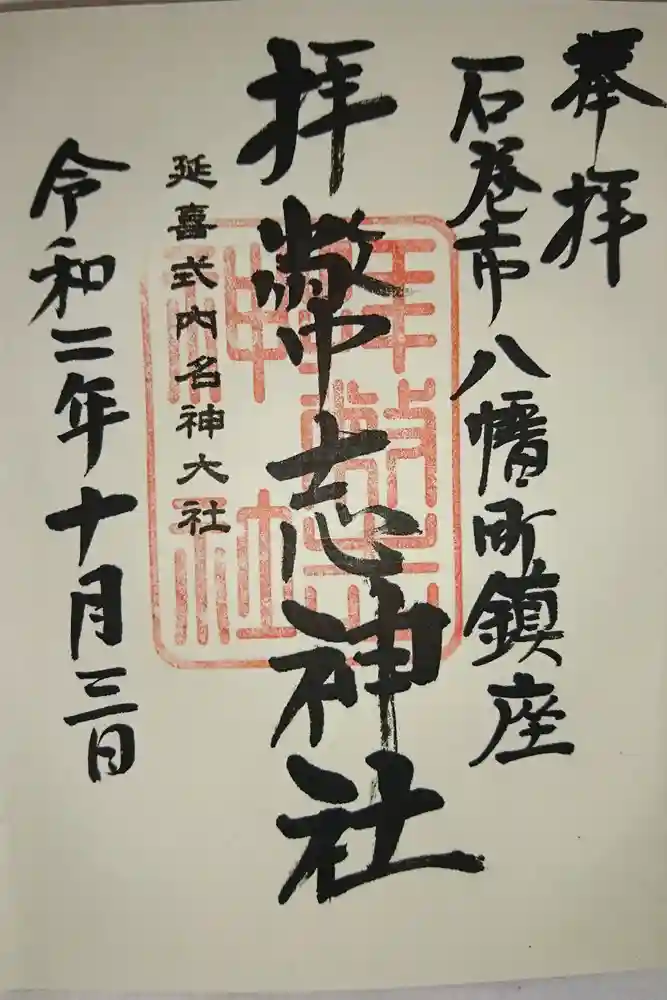 奉拝
石巻市八幡町鎮座
拝幣志神社
延喜式内名神大社
令和二年十月三日
拝幣志神社